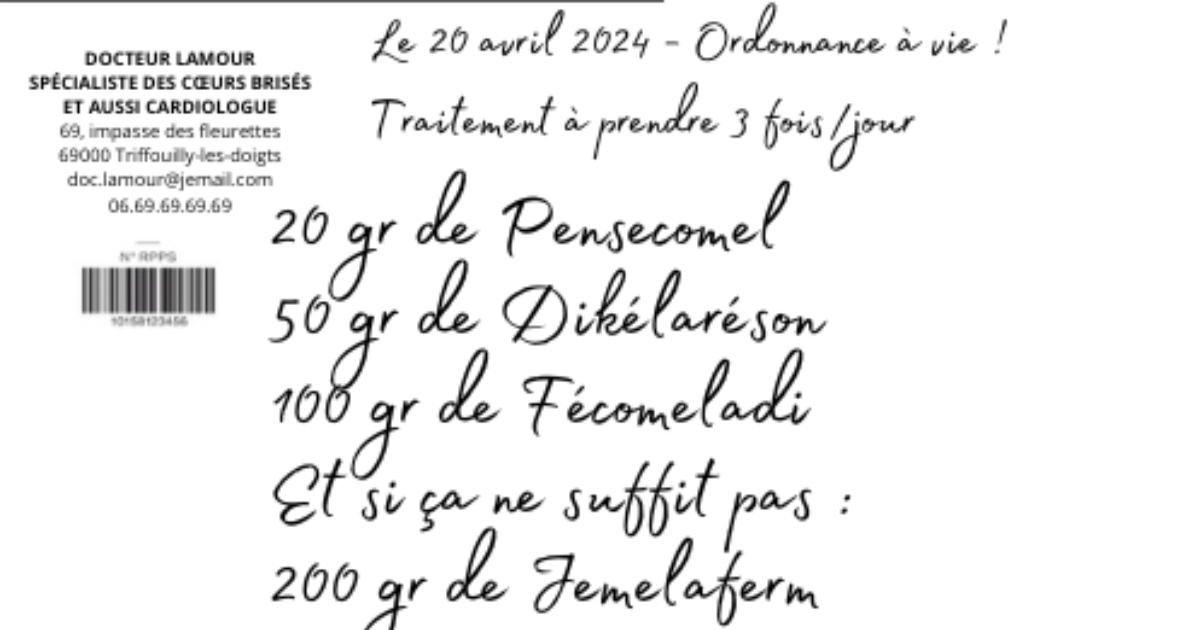 DOCTEUR LAMOUR
SPÉCIALISTE DES CŒURS BRISÉS
ET AUSSI CARDIOLOGUE
69, impasse des fleurettes
69000 Triffouilly-les-doigts
doc.lamour@jemail.com
06.69.69.69.69
N° RPPS
10158123456
Le 20 avril 2024 - Ordonnance à vie !
Traitement à prendre 3 fois/jour
20 gr de Pensecomel
50 gr de Dikélaréson
100 gr de Fécomeladi
Et si ça ne suffit pas :
200 gr de Jemelaferm